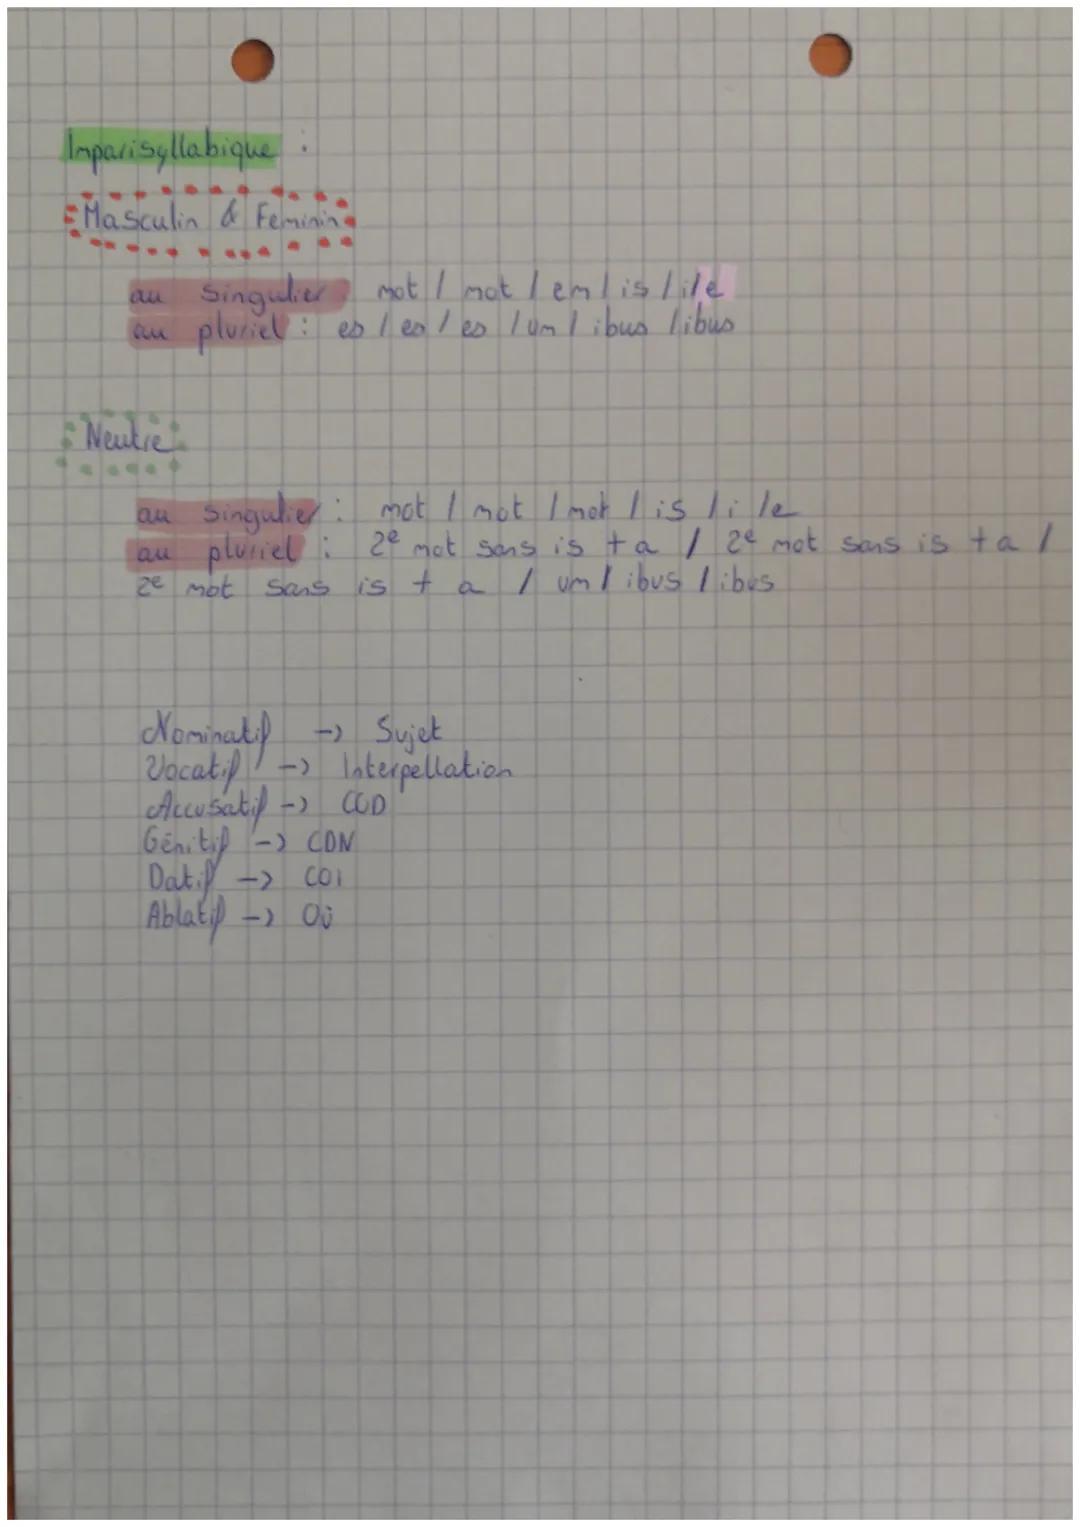 Imparisyllabique :
Masculin & Feminin
au singulier mot / mot / em / is / i/e
au pluriel : es / es / es / um / ibus / ibus
Neutre
au singulier : mot / mot / mot / is / i /e
au pluriel : 2e mot sans is + a / 2e mot sans is + a /
2e mot sans is + a / um / ibus / ibus
Nominatif -> Sujet
Vocatif -> Interpellation
Accusatif -> COD
Génitif -> CDN
Datif -> COI
Ablatif -> Où